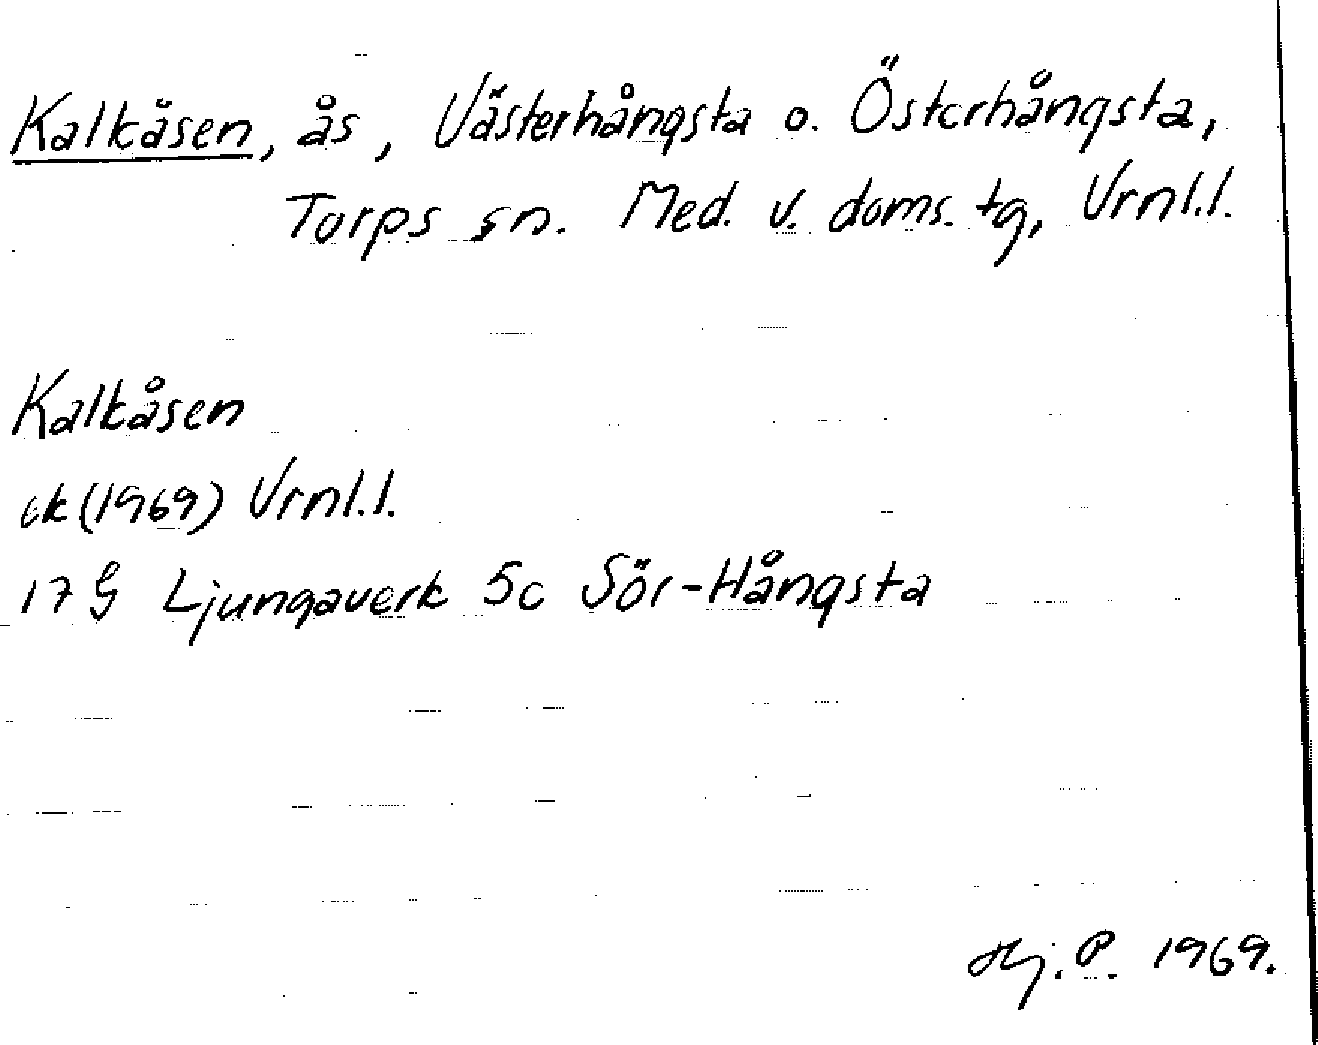 Kalkåsen, ås, Västerhångsta o. Österhångsta,
Torps sn. Med. v. doms. tg, Vrnl.l.
Kalkåsen
ek (1969) Vrnl.l.
17 G Ljungaverk 5c Sör-Hångsta
Hj. P. 1969.